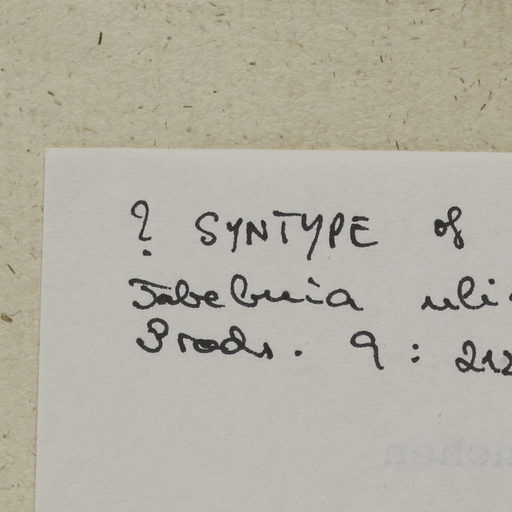 ? SYNTYPE of
Tabebuia uli
Prodr. 9: 212